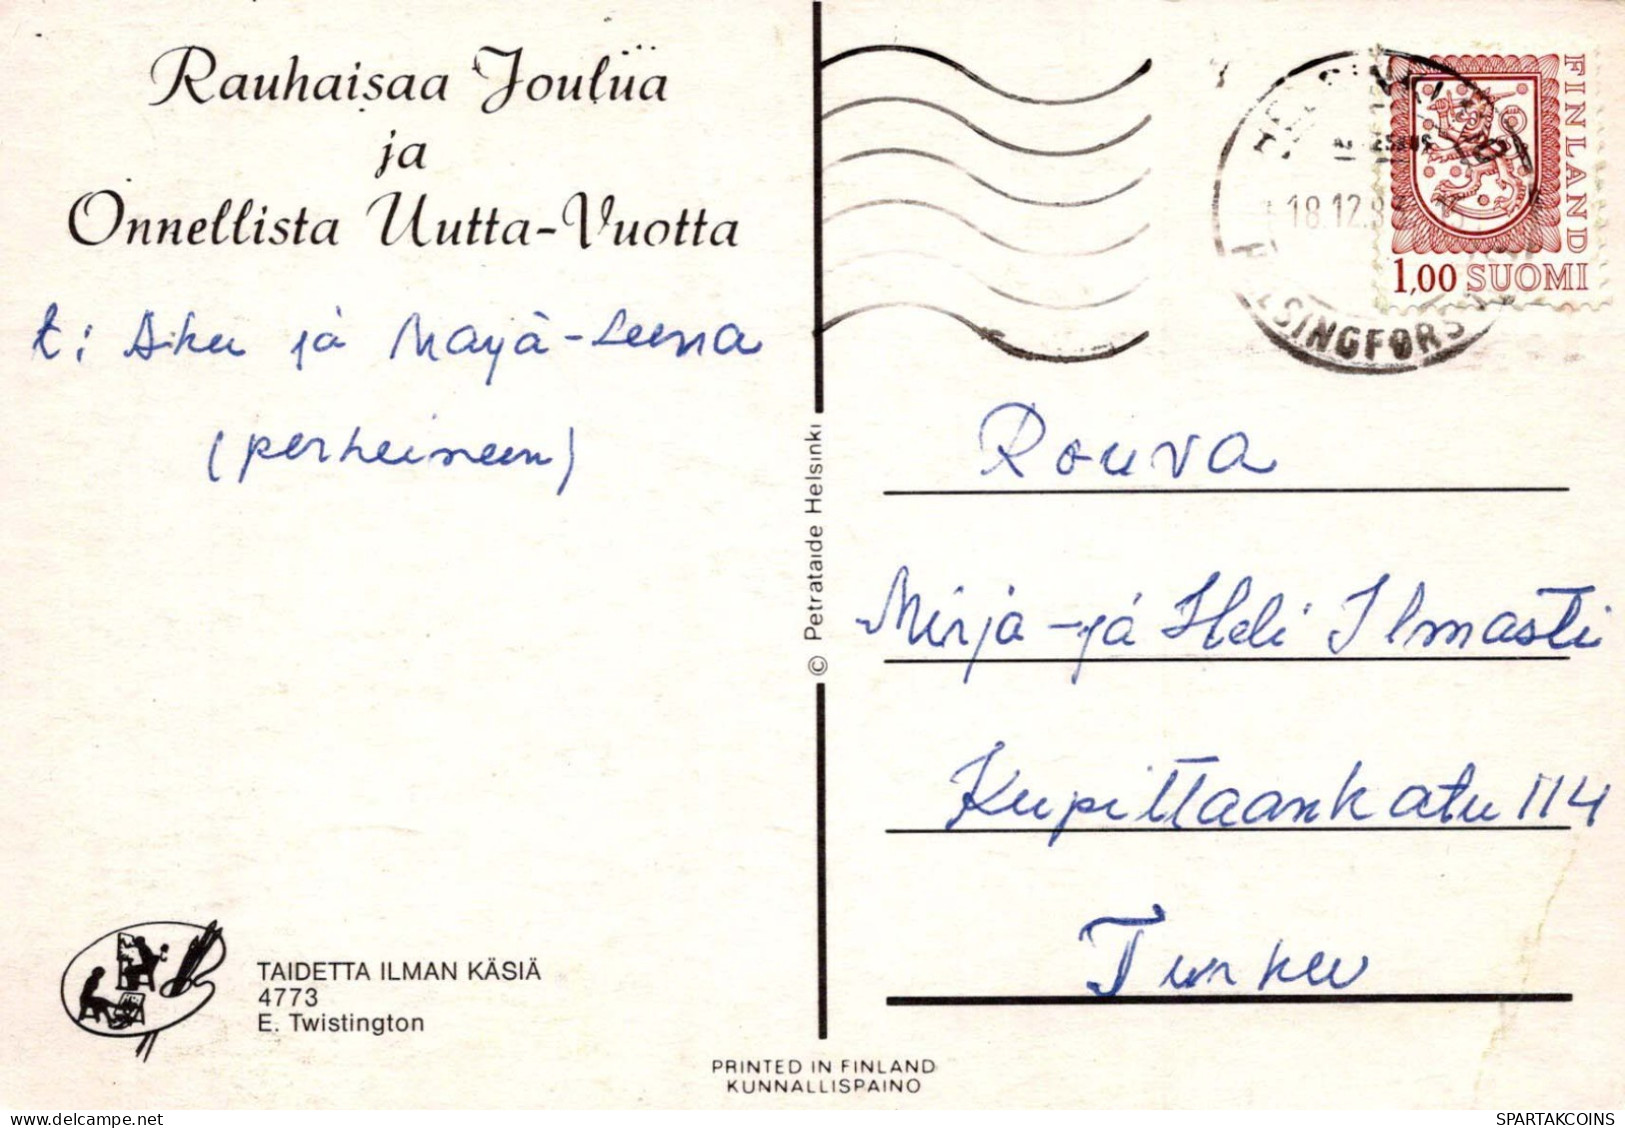 Rauhaisaa Joulua
ja
Onnellista Uutta-Vuotta
t: Aku ja Maija-Leena
(perheineen)
TAIDETTA ILMAN KÄSIÄ
4773
E. Twistington
© Petrataide Helsinki
PRINTED IN FINLAND
KUNNALLISPAINO
18.12.8
HELSINGFORS
FINLAND
1,00 SUOMI
Rouva
Mirja-ja Heli Ilmasti
Kupittaankatu 114
Turku
SPARTAKCOINS